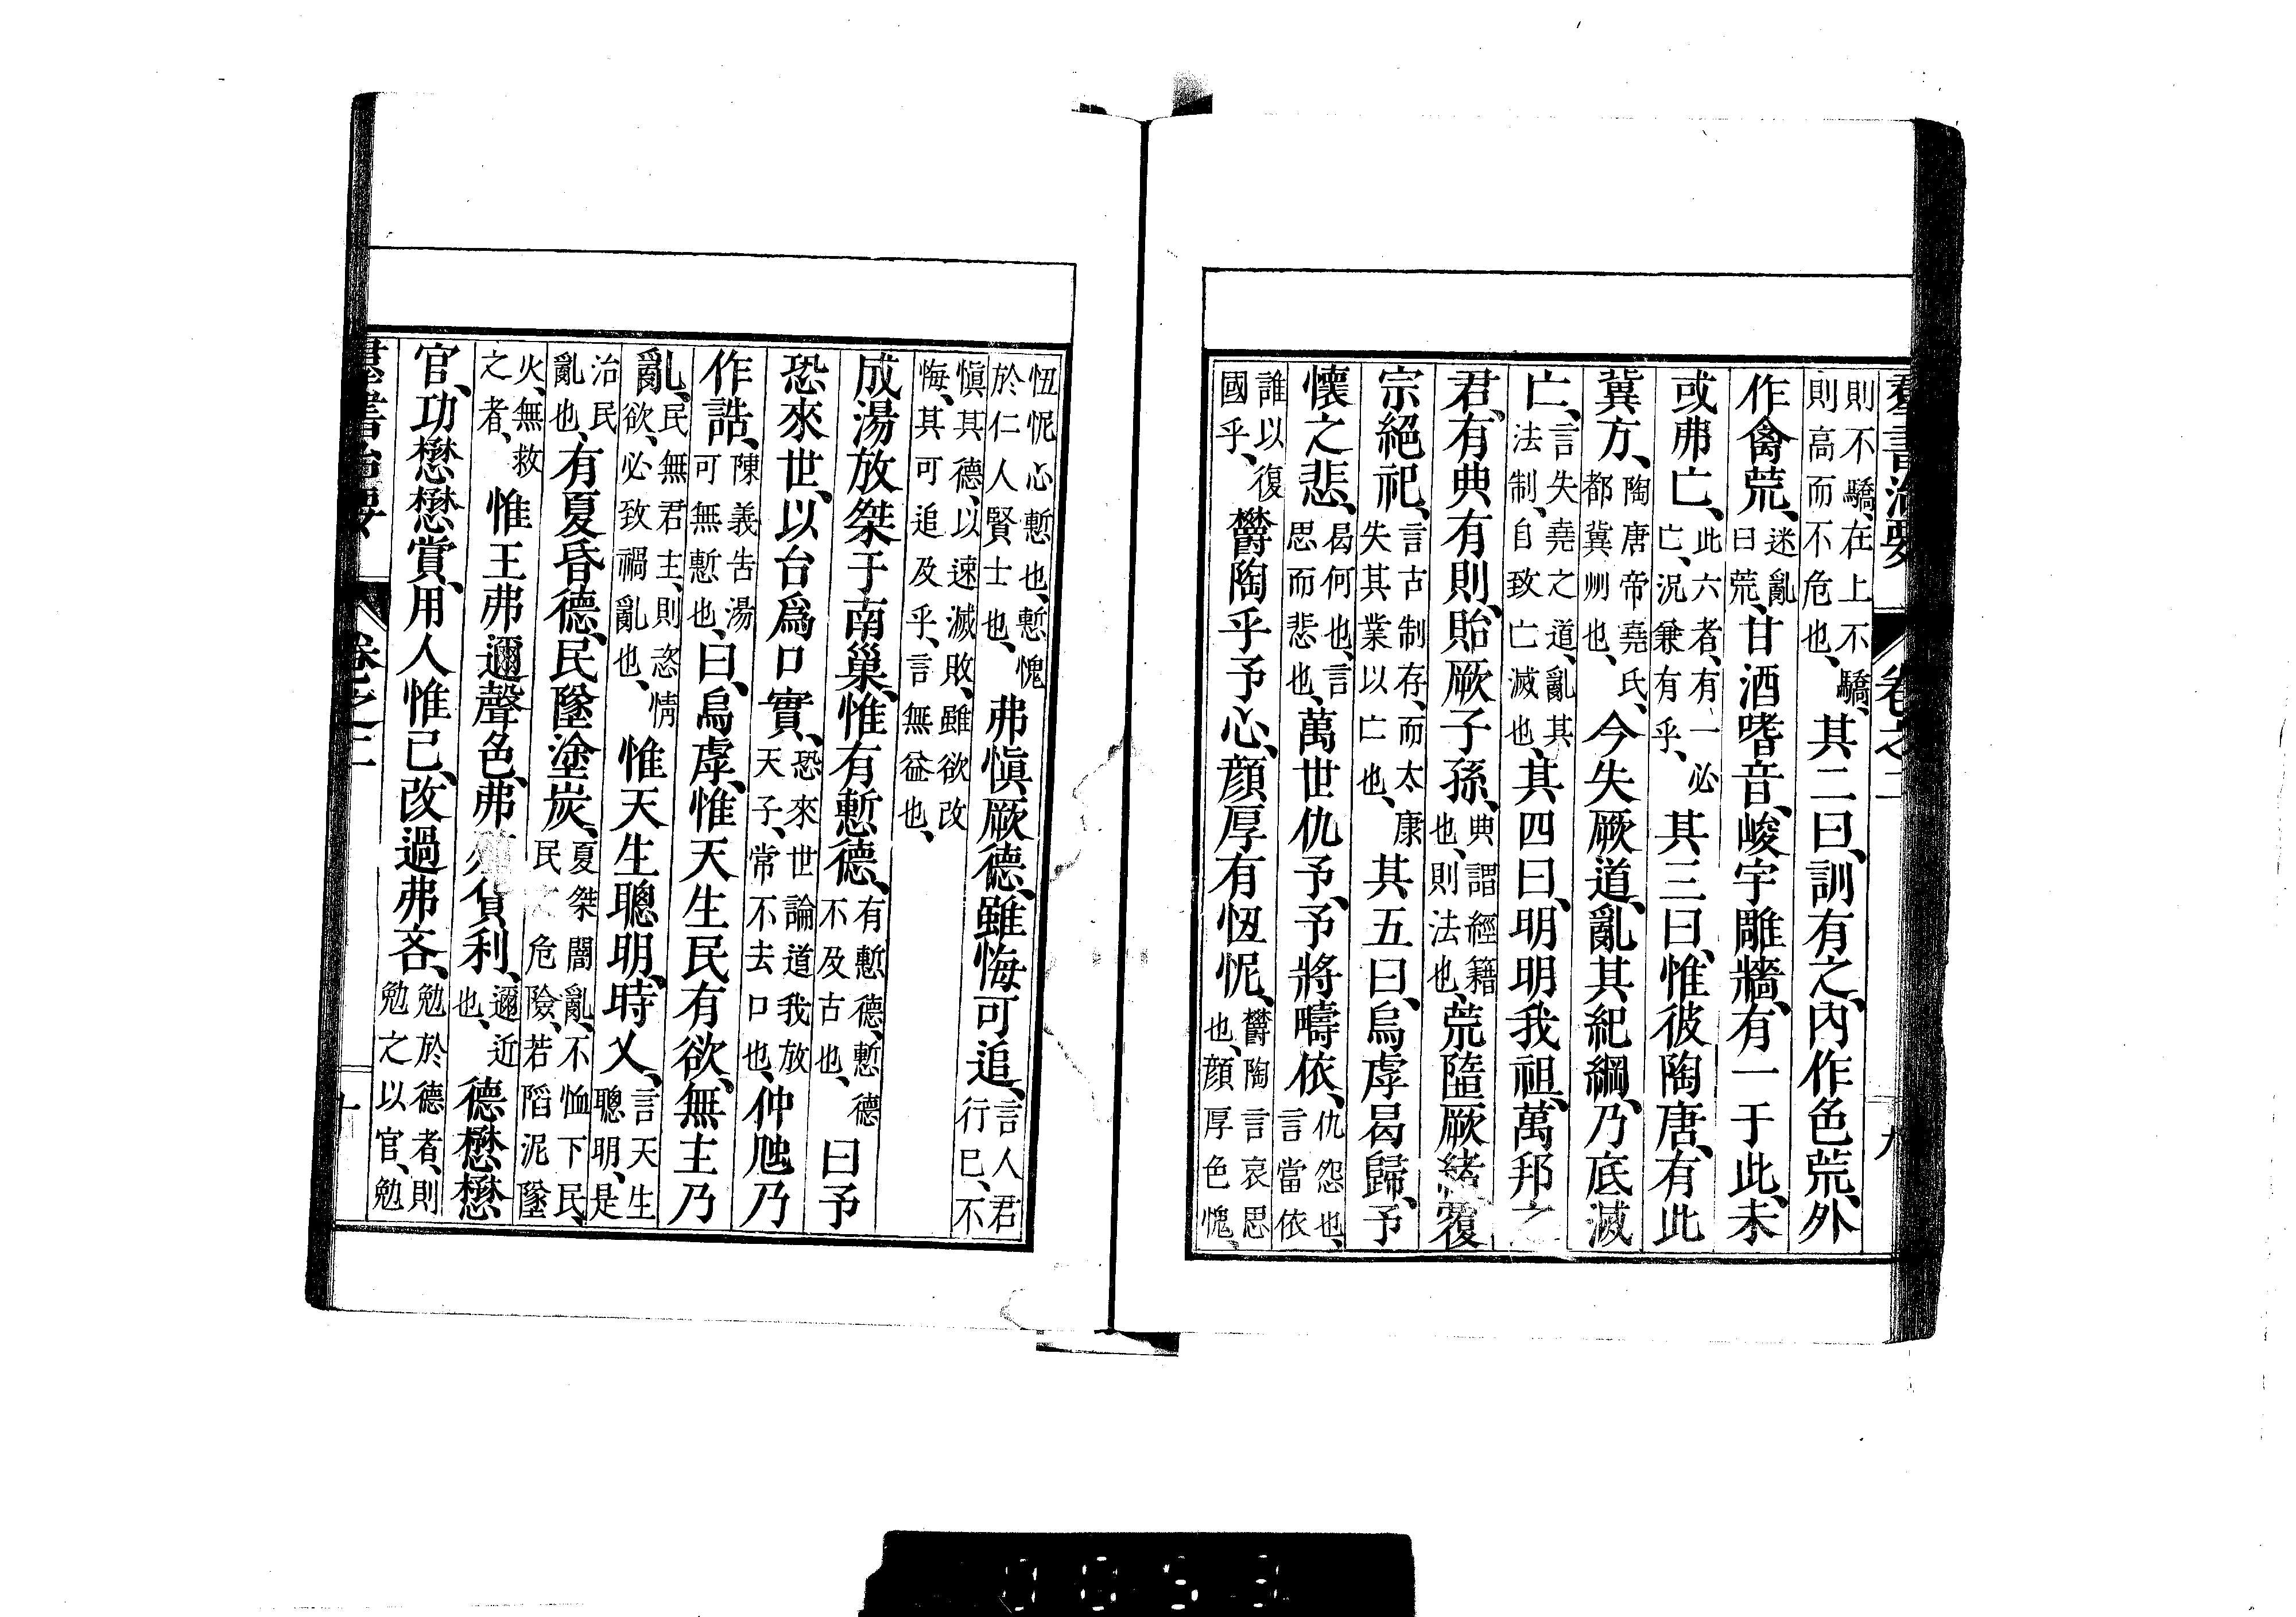 羣書治要 卷之二 九
則不驕、在上不驕、則高而不危也、其二曰、訓有之、內作色荒、外
作禽荒、迷亂曰荒、甘酒嗜音、峻宇雕牆、有一于此、未
或弗亡、此六者、有一必亡、況兼有乎、其三曰、惟彼陶唐、有此
冀方、陶唐帝堯氏、都冀州也、今失厥道、亂其紀綱、乃底滅
亡、言失堯之道、亂其法制、自致亡滅也、其四曰、明明我祖、萬邦之
君、有典有則、貽厥子孫、典謂經籍也、則法也、荒墜厥緒、覆
宗絕祀、言古制存、而太康失其業以亡也、其五曰、烏虖曷歸、予
懷之悲、曷何也、言思而悲也、萬世仇予、予將疇依、仇怨也、言當依
誰以復國乎、欝陶乎予心、顏厚有忸怩、欝陶言哀思也、顏厚色愧、
忸怩心慙也、慙愧於仁人賢士也、弗愼厥德、雖悔可追、言人君行己、不
愼其德、以速滅敗、雖欲改悔、其可追及乎、言無益也、
成湯放桀于南巢、惟有慙德、有慙德、慙德不及古也、曰予
恐來世、以台爲口實、恐來世論道我放天子、常不去口也、仲虺乃
作誥、陳義吿湯可無慙也、曰、烏虖、惟天生民有欲、無主乃
亂、民無君主、則恣情欲、必致禍亂也、惟天生聰明、時乂、言天生聰明、是
治民亂也、有夏昏德、民墜塗炭、夏桀闇亂、不恤下民、民危險、若陷泥墜
火、無救之者、惟王弗邇聲色、弗貨利、邇近也、德懋懋
官、功懋懋賞、用人惟己、改過弗吝、勉於德者、則勉之以官、勉
羣書治要 卷之二 十